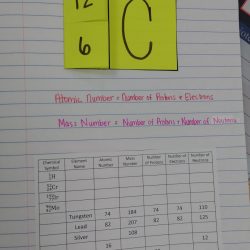 12
6
C
Atomic Number = Number of Protons & Electrons
Mass Number = Number of Protons + Number of Neutrons
Chemical Symbol Element Name Atomic Number Mass Number Number of Protons Number of Electrons Number of Neutrons
Tungsten 74 184 74 74 110
Lead 82 207 82 82 125
Silver 108
16 12